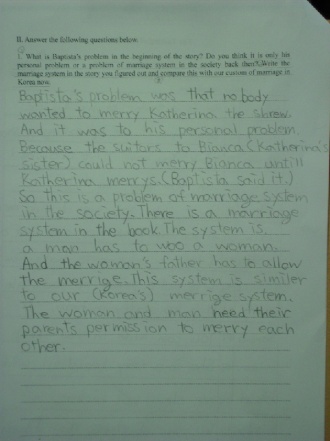 II. Answer the following questions below.
1. What is Baptista's problem in the beginning of the story? Do you think it is only his
personal problem or a problem of marriage system in the society back then? Write the
marriage system in the story you figured out and compare this with our custom of marriage in
Korea now.
Baptista's problem was that nobody
wanted to merry Katherina the shrew.
And it was to his personal problem.
Because the suitors to Bianca (Katherina's
sister) could not merry Bianca untill
Katherina merrys. (Baptista said it.)
So this is a problem of marriage system
in the society. There is a marriage
system in the book The system is,
a man has to woo a woman.
And the woman's father has to allow
the merrige. This system is similer
to our (Korea's) merrige system.
The woman and man need their
parents permission to merry each
other.